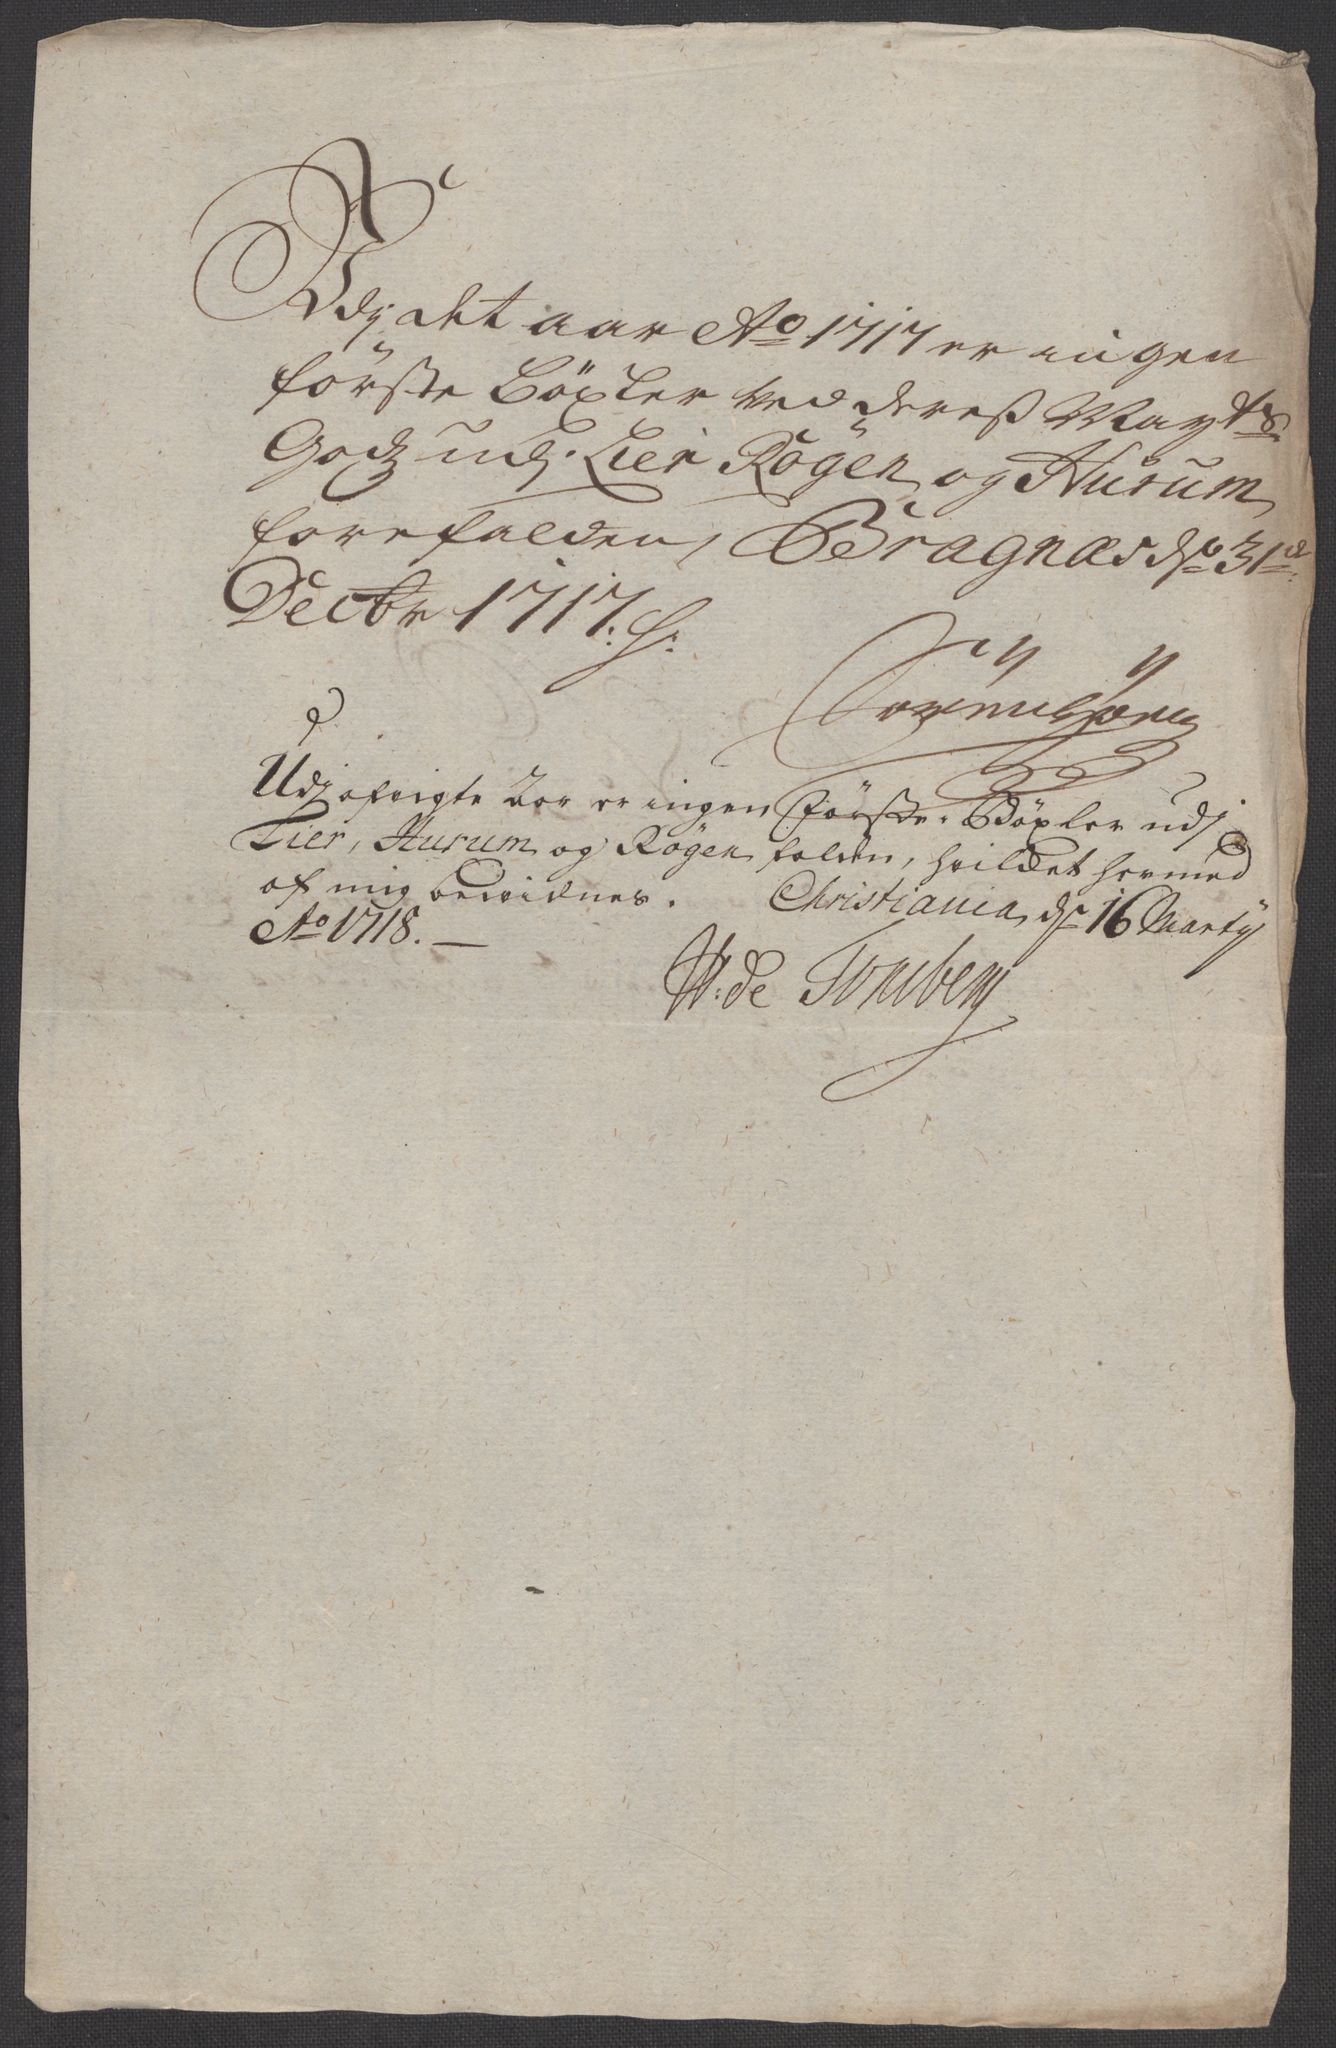 Udj det aar Ao 1717 er ingen
förste Böxler ved dereß Mayts
Godz udj Lier Rögen og Hurum
forefalden, Bragnæs dp 31 d
Decbr 1717.
Udj ofrigte Aar er ingen Förste Böxler udj
Lier, Hurum og Rögen falden, hvilcket hermed
af mig bevidnes. Christiania dp 16 Marty
Ao 1718.
W: de Tonsberg